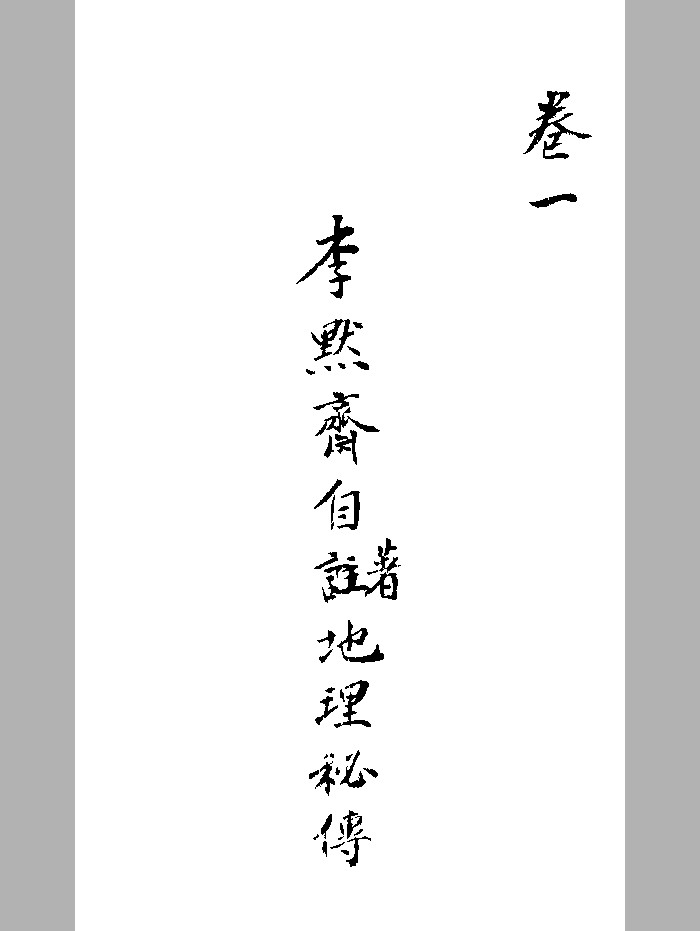 卷一
李默齋自註著地理秘傳